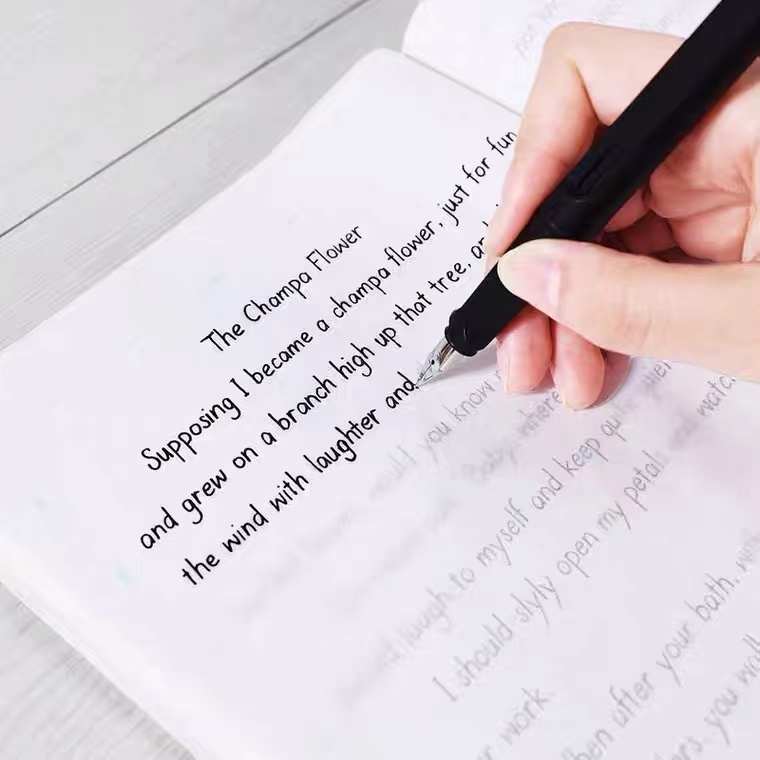 The Champa Flower
Supposing I became a champa flower, just for fun
and grew on a branch high up that tree, and
the wind with laughter and
would you know
Baby, where
laugh to myself and keep quiet
I should slyly open my petals and watch
when after your bath,
you walk
work.